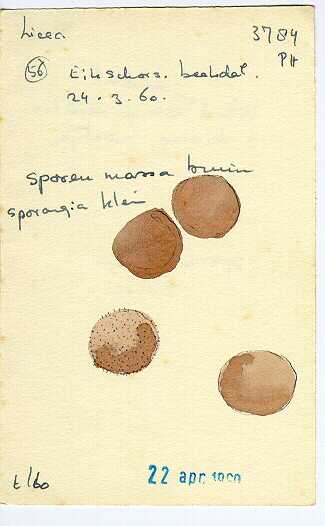 Licea.
3784
PH
56 Eikschors. beekdal.
24.3.60.
sporen massa bruin
sporangia klein
t/60
22 apr. 1960